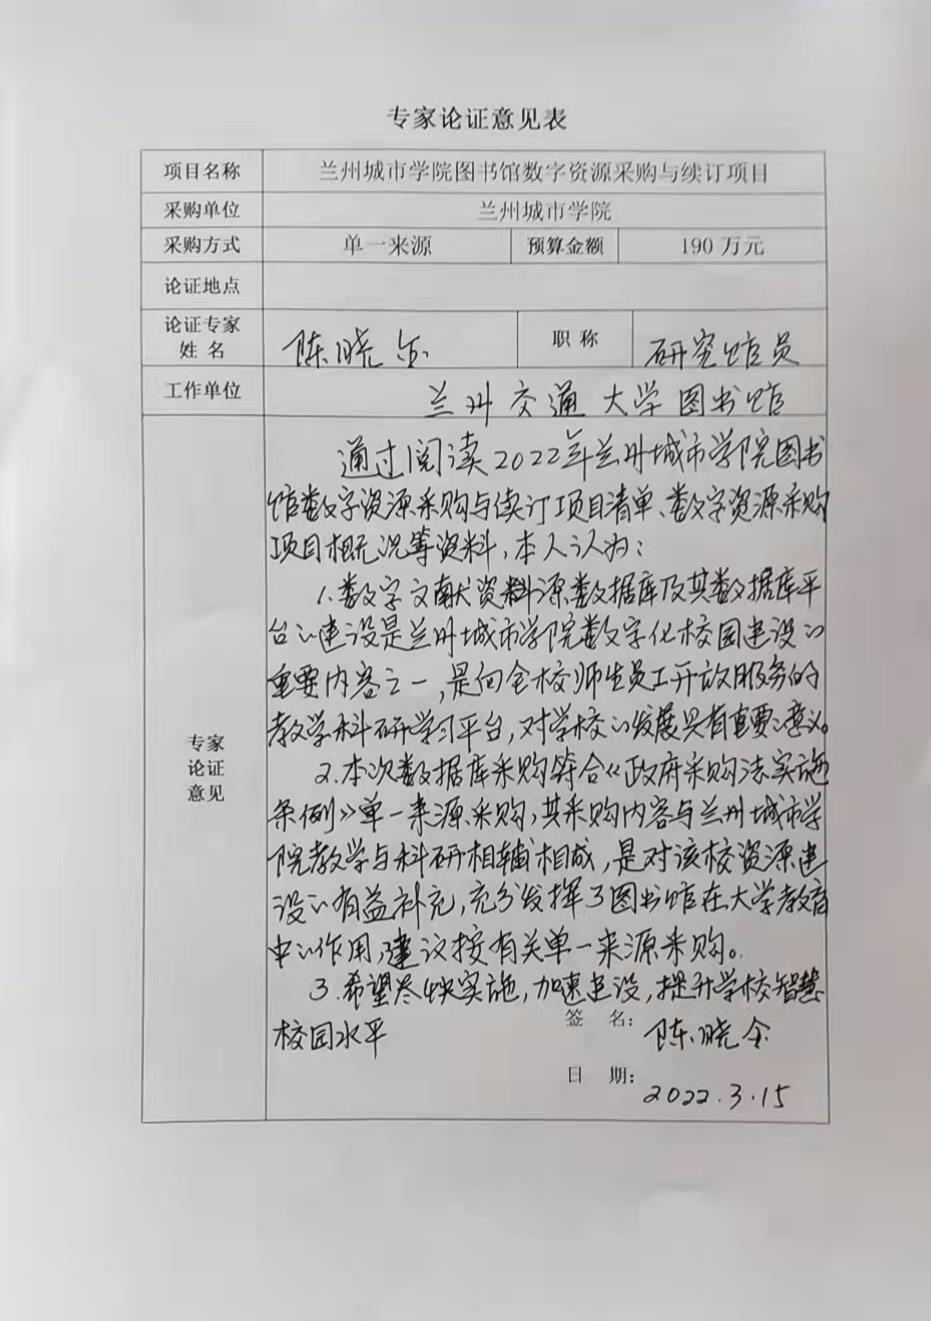 专家论证意见表
项目名称 兰州城市学院图书馆数字资源采购与续订项目
采购单位 兰州城市学院
采购方式 单一来源 预算金额 190万元
论证地点
论证专家
姓 名 陈晓 职称 研究馆员
工作单位 兰州交通大学图书馆
通过阅读2022年兰州城市学院图书
馆数字资源采购与续订项目清单、数字资源采购
项目概况等资料,本人认为:
1.数字文献资料源数据库及其数据库平
台的建设是兰州城市学院数字化校园建设的
重要内容之一,是向全校师生员工开放服务的
教学科研学习平台,对学校的发展具有重要意义。
专家
论证
意见
2.本次数据库采购符合《政府采购法实施
条例》单一来源采购,其采购内容与兰州城市学
院教学与科研相辅相成,是对该校资源建
设的有益补充,充分发挥了图书馆在大学教育
中的作用,建议按有关单一来源采购。
3.希望尽快实施,加速建设,提升学校智慧
校园水平
签 名: 陈晓
日 期: 2022.3.15